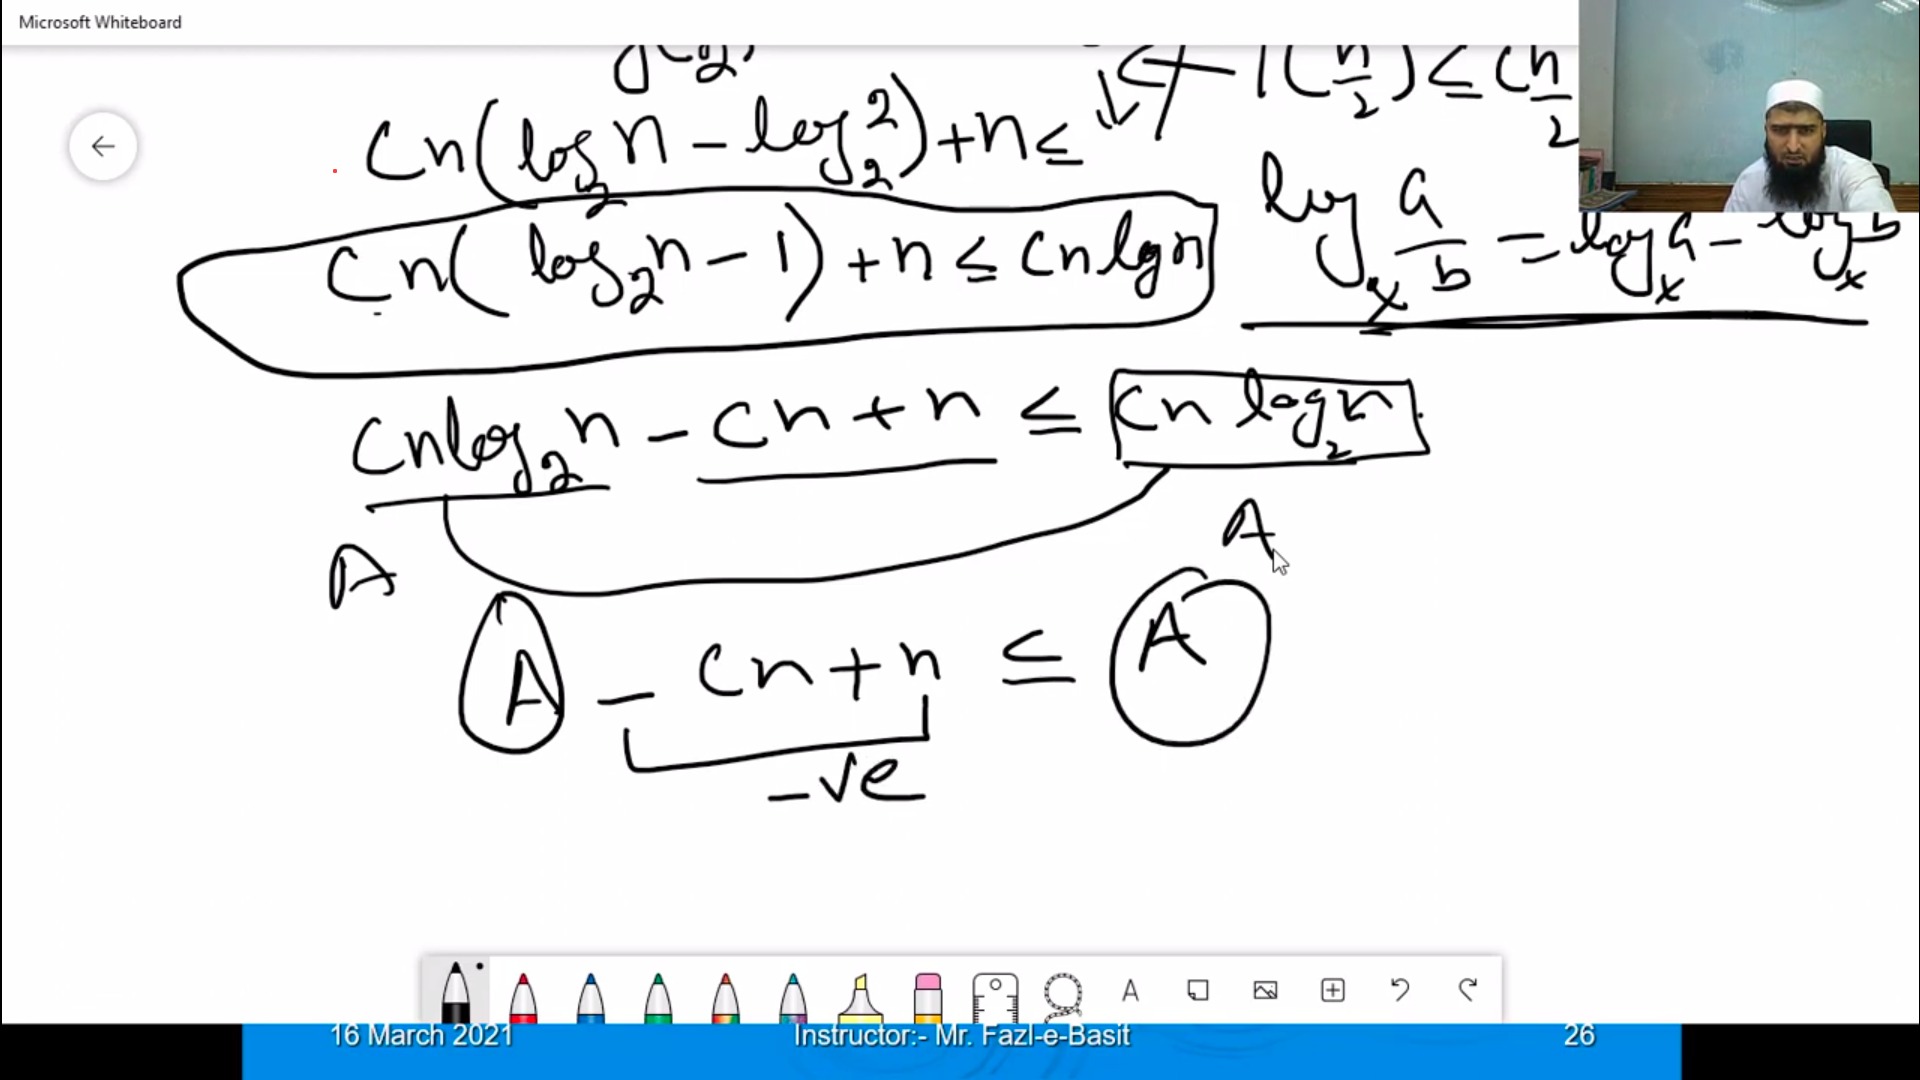 Microsoft Whiteboard
Cn(log₂n - log₂2) + n ≤
(n/2) ≤ cn/2
Cn(log₂n - 1) + n ≤ cn lg n
logₓ a/b = logₓ a - logₓ b
cn log₂n - cn + n ≤ cn log₂n
A
A
A - cn + n ≤ A
-ve
A
16 March 2021
Instructor:- Mr. Fazl-e-Basit
26